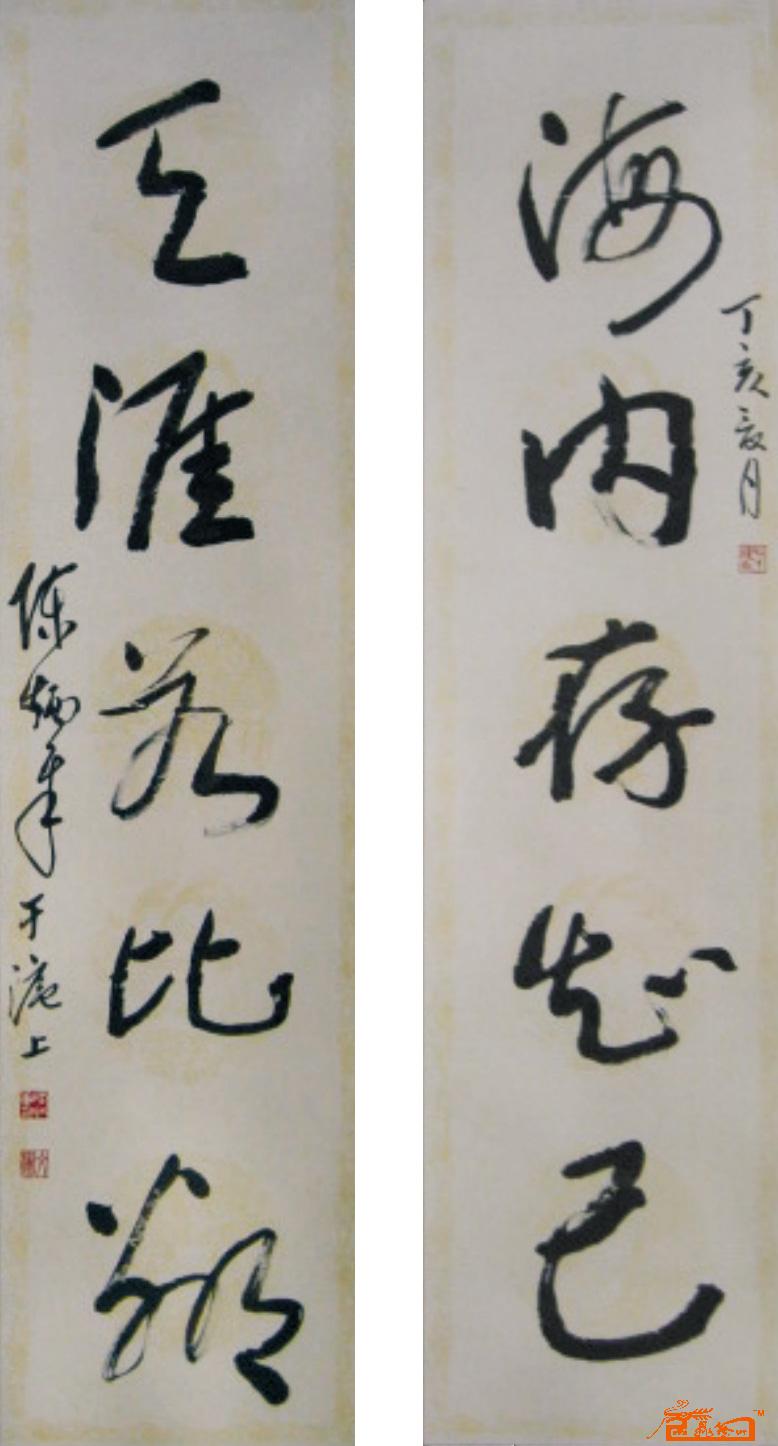 海内存知己
丁亥之夏月
天涯若比邻
陈炳年于沪上